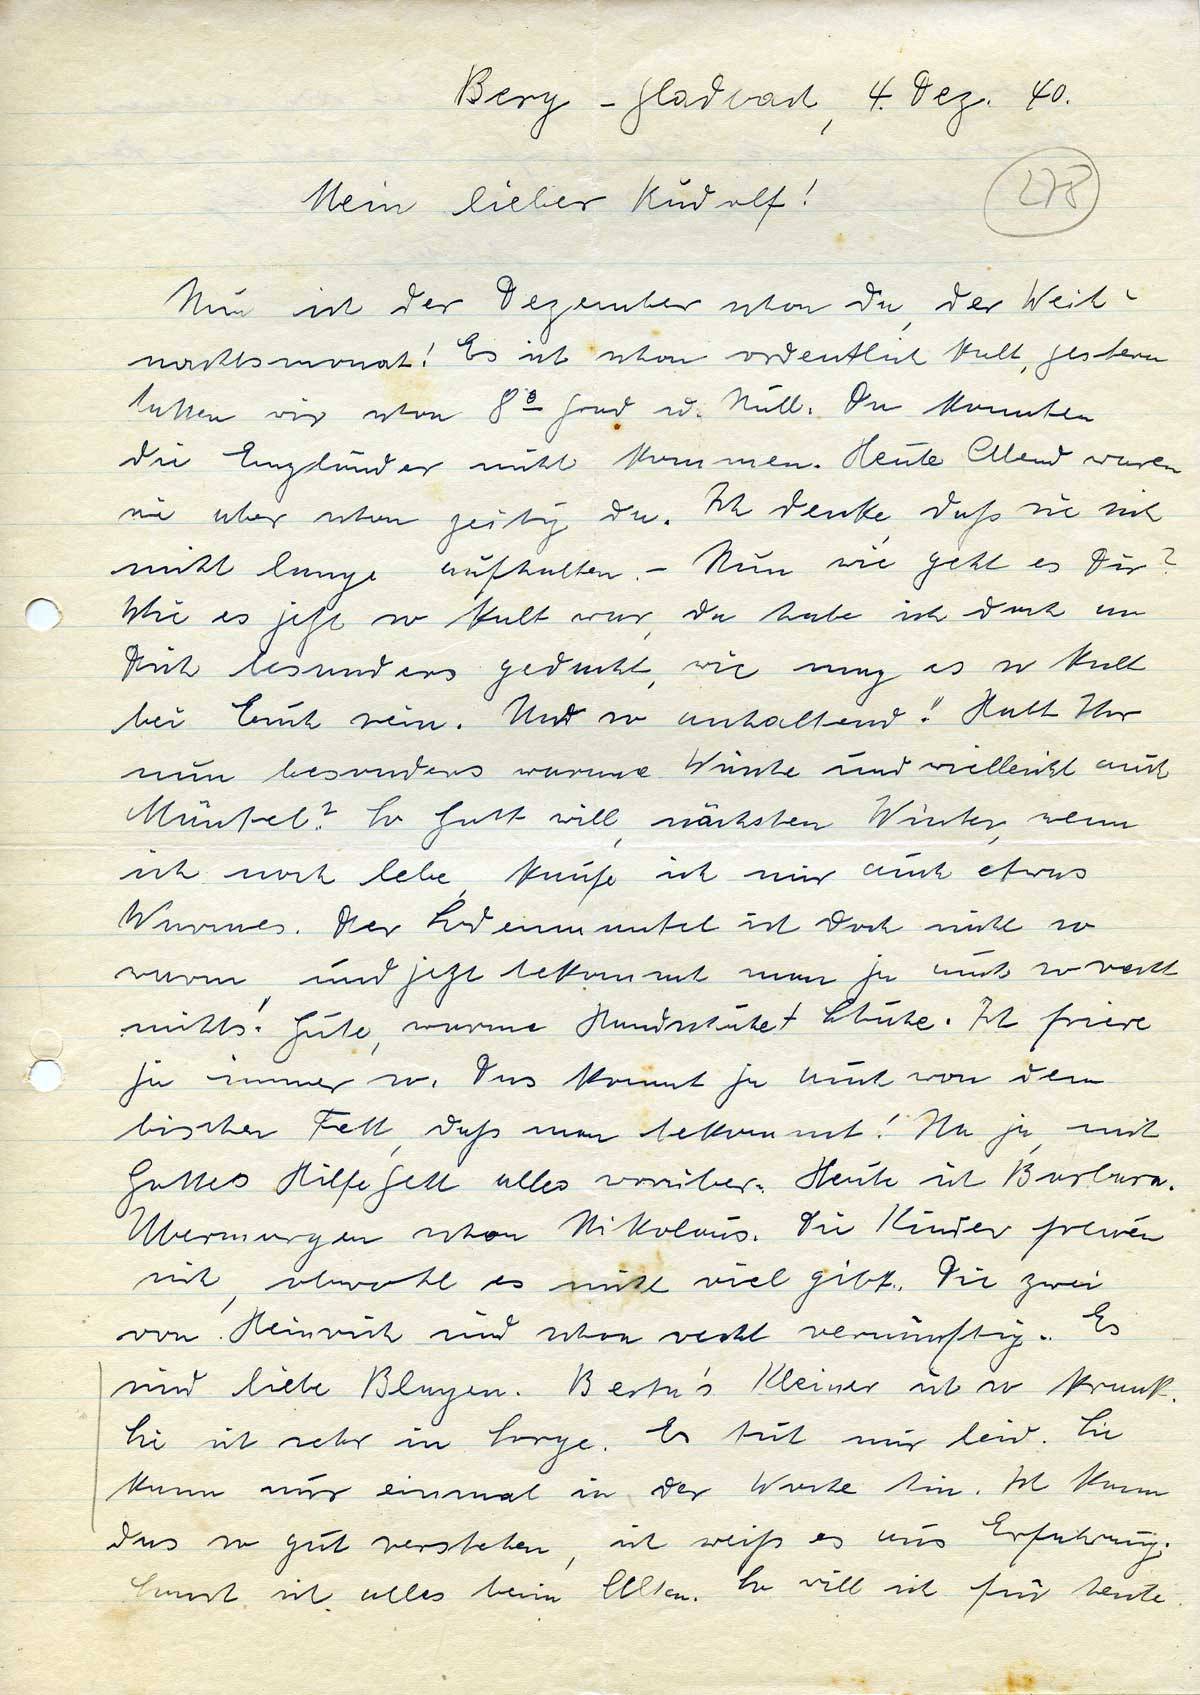 Berg - Gladbach, 4. Dez. 40.
278
Mein lieber Rudolf!
Nun ist der Dezember schon da, der Weih-
nachtsmonat! Es ist schon ordentlich kalt, gestern
hatten wir schon 8° Grad u. Null. Da konnten
die Engländer nicht kommen. Heute Abend waren
sie aber schon zeitig da. Ich denke, daß sie sich
nicht lange aufhalten. - Nun wie geht es Dir?
Wie es jetzt so kalt war, da habe ich doch an
Dich besonders gedacht, wie mag es so kalt
bei Euch sein. Und so anhaltend! Habt Ihr
nun besonders warme Wäsche und vielleicht auch
Mäntel? So Gott will, nächsten Winter, wenn
ich noch lebe, kaufe ich mir auch etwas
Warmes. Der Lodenmantel ist doch nicht so
warm, und jetzt bekommt man ja auch so recht
nichts! Gute, warme Handschuhe + Schuhe. Ich friere
ja immer so. Das kommt ja auch von dem
bischen Fett, daß man bekommt! Na ja, mit
Gottes Hilfe geht alles vorüber. Heute ist Barbara.
Übermorgen schon Nikolaus. Die Kinder freuen
sich, obwohl es nicht viel gibt. Die zwei
von Heinrich sind schon recht vernünftig. Es
sind liebe Blagen. Berta's Kleiner ist so krank.
Sie ist sehr in Sorge. Es tut mir leid. Sie
kann nur einmal in der Woche hin. Ich kann
das so gut verstehen, ich weiß es aus Erfahrung.
Sonst ist alles beim Alten. So will ich für heute